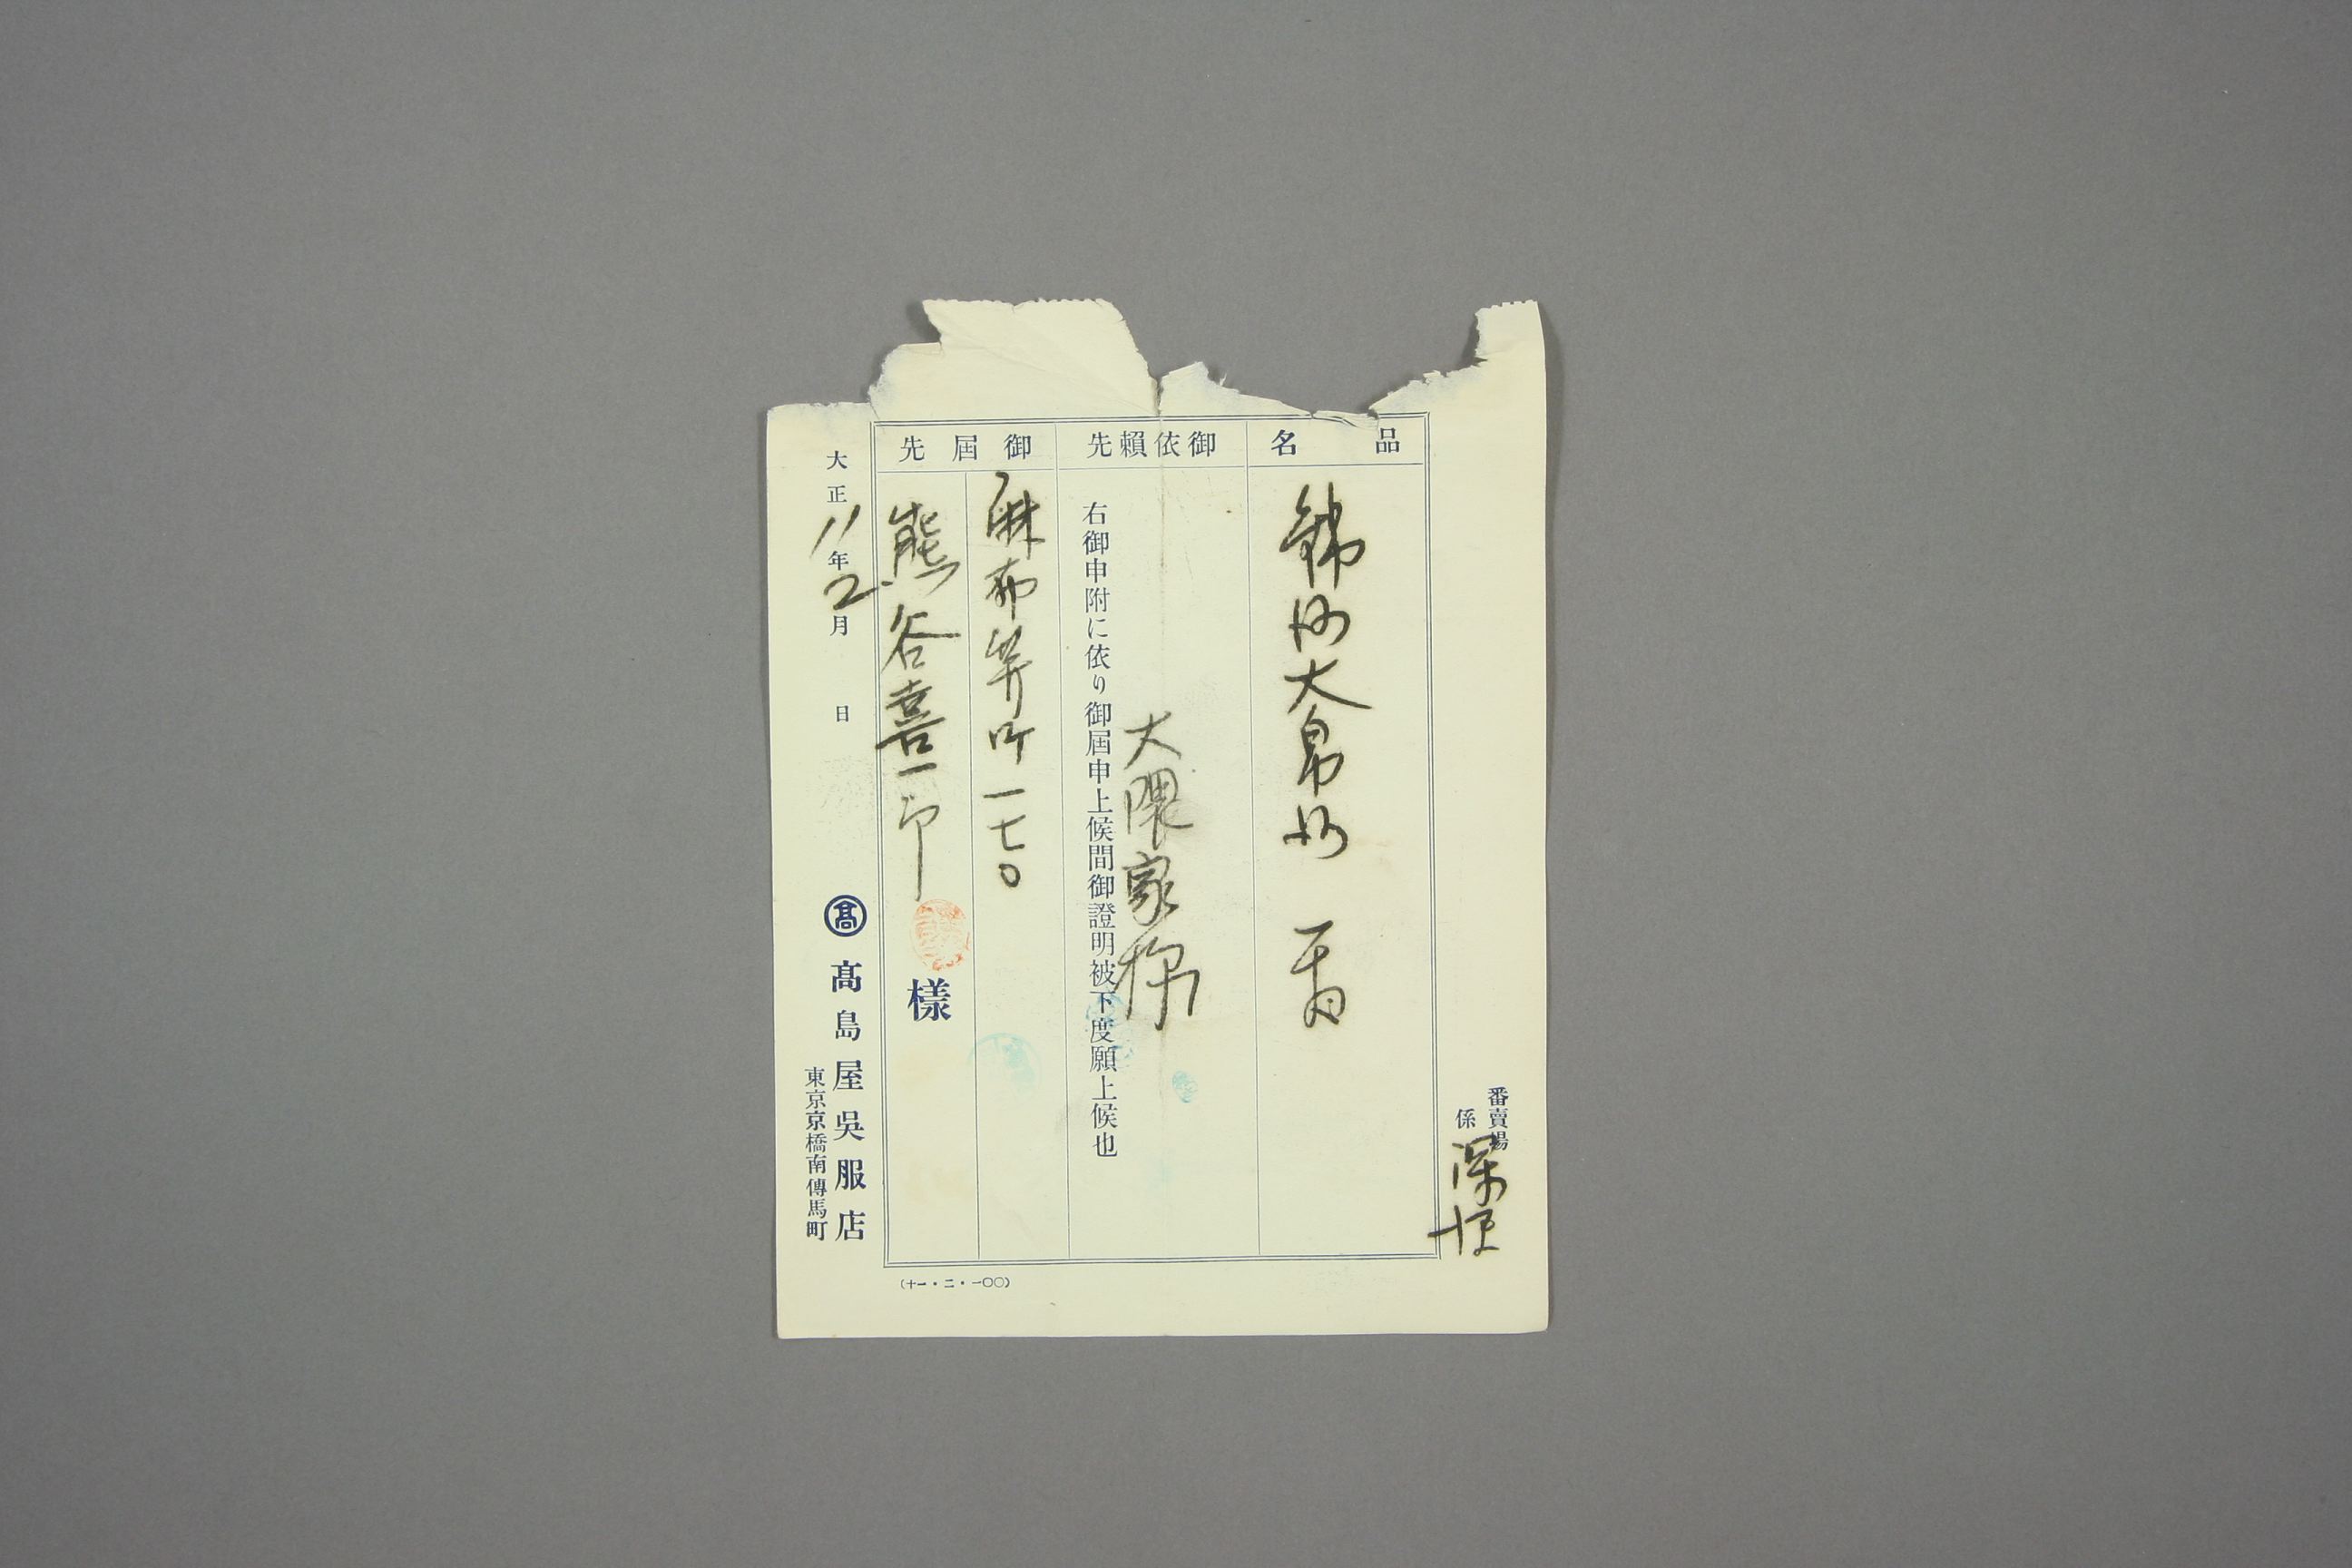 番賣場
係
品名
錦紗大帛紗
御依賴先
大隈家
右御申附に依り御屆申上候間御證明被下度願上候也
御屆先
麻布笄町一七〇
熊谷喜一郎様
大正11年2月 日
髙
髙島屋吳服店
東京京橋南傳馬町
(十一・二・一〇〇)